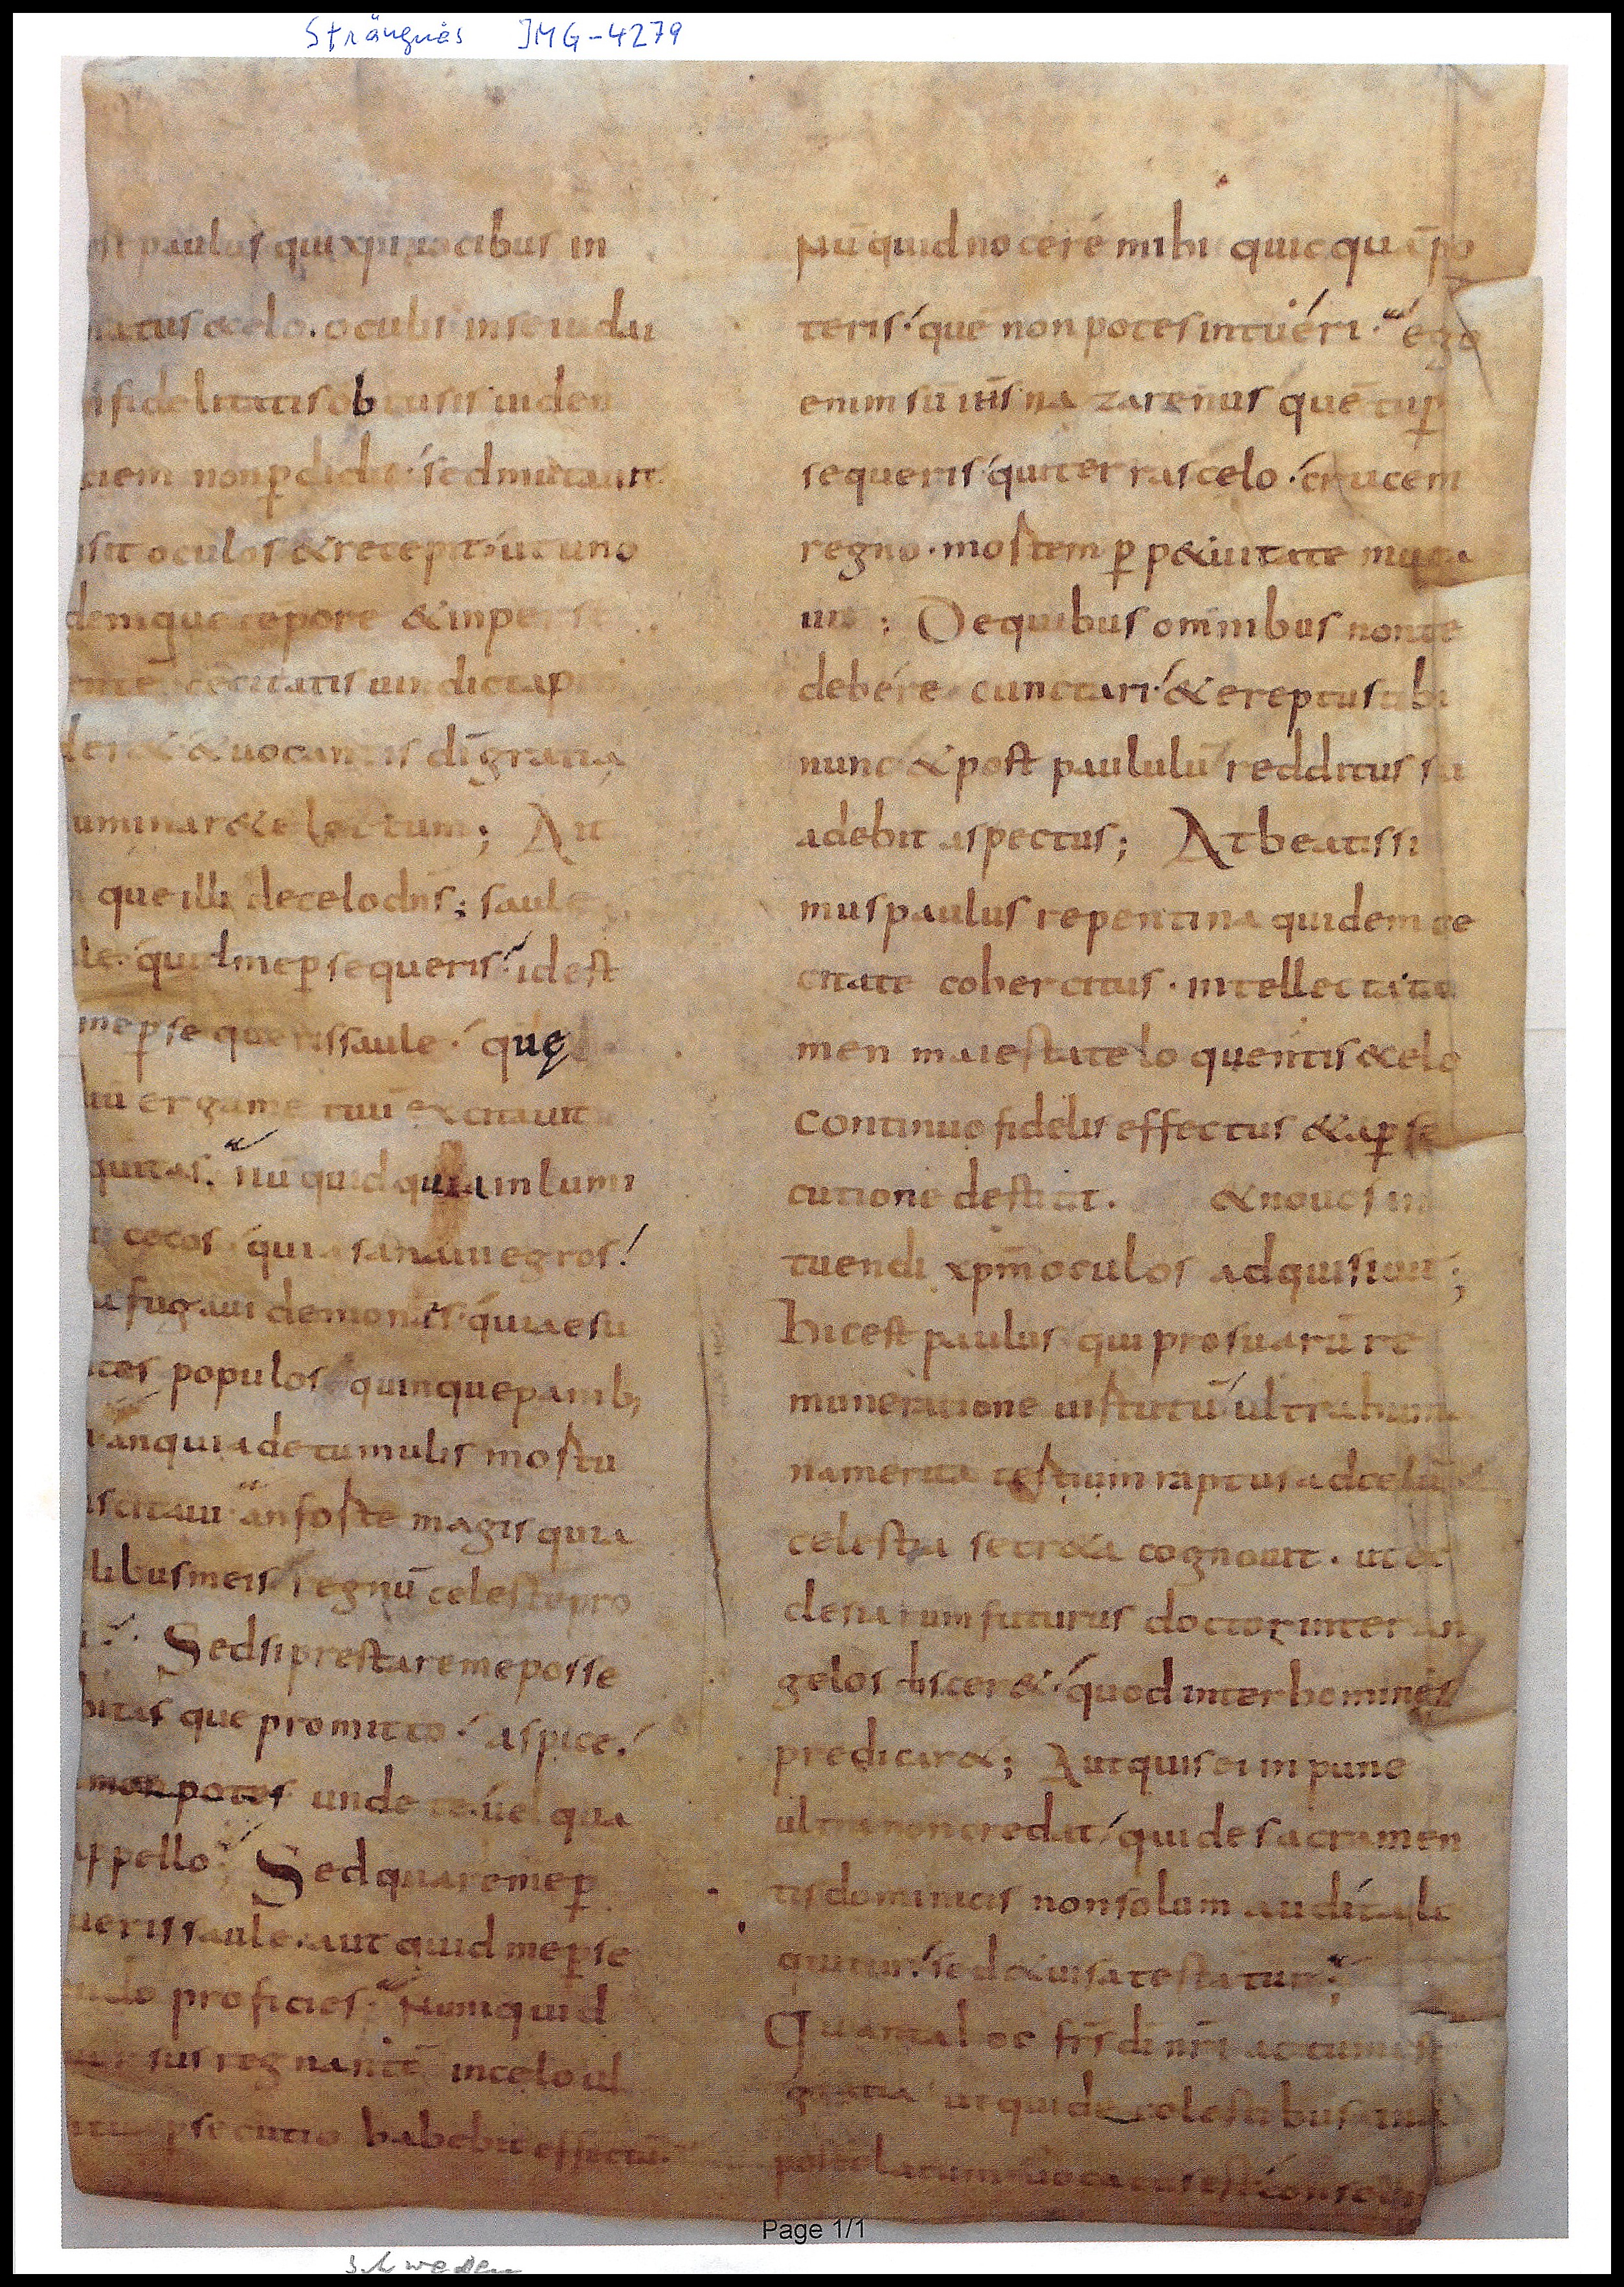 Strängnäs IMG-4279
paulus qui xpi uocibus in
&celo. oculis in se iudai
fidelitatis obtusis uiden
ciem non pdidit sed mutauit
oculos & recepit ut uno
demque tepore & inper
cecitatis uindicta
& uocantis di gratia
uminar& electum; Ait
que illi decelo dns; saule
quid me psequeris idest
me psequeris saule quę
erga me tuu excitauit
quitas nu quid quia in lumi
cecos quia sanaui egros
fugaui demones quia esu
populos quinque panib;
an quia de tumulis mortu
scitaui an forte magis quia
libus meis regnu celeste pro
Sed si prestare me posse
bitas que promitto aspice
non potes unde te uel qua
appello Sed quare me p
ueris saule. aut quid me pse
proficies Numquid
regnante in celo ul
psecutio habebit effectu.
Nu quid nocere mihi quic qua po
teris que non potes intueri. ego
enim su ihs nazarenus que tu p
sequeris qui terras celo crucem
regno. mortem p p&uitate muta
uit; De quibus omnibus non te
debere cunctari & ereptus tibi
nunc & post paululu redditus su
adebit aspectus; At beatissi
mus paulus repentina quidem ce
citate cohercitus. intellecta ta
men maiestate loquentis &celo
continuo fidelis effectus & a pse
cutione destitit. & nouos in
tuendi xpm oculos adquisiuit;
hic est paulus qui pro suaru re
muneratione uirtutu ultra huma
na merita testium raptus ad celu
celestia secr&a cognouit. ut ec
clesiarum futurus doctor inter an
gelos discer& quod inter homines
predicar&; Aut quis ei in pune
ultra non credat qui de sacramen
tis dominicis non solum audita lo
quitur sed & uisa testatur;
Quanta hoc frs di nri actum est
gratia ut qui de celestibus
postolatum uocatus est
Page 1/1
Schweden